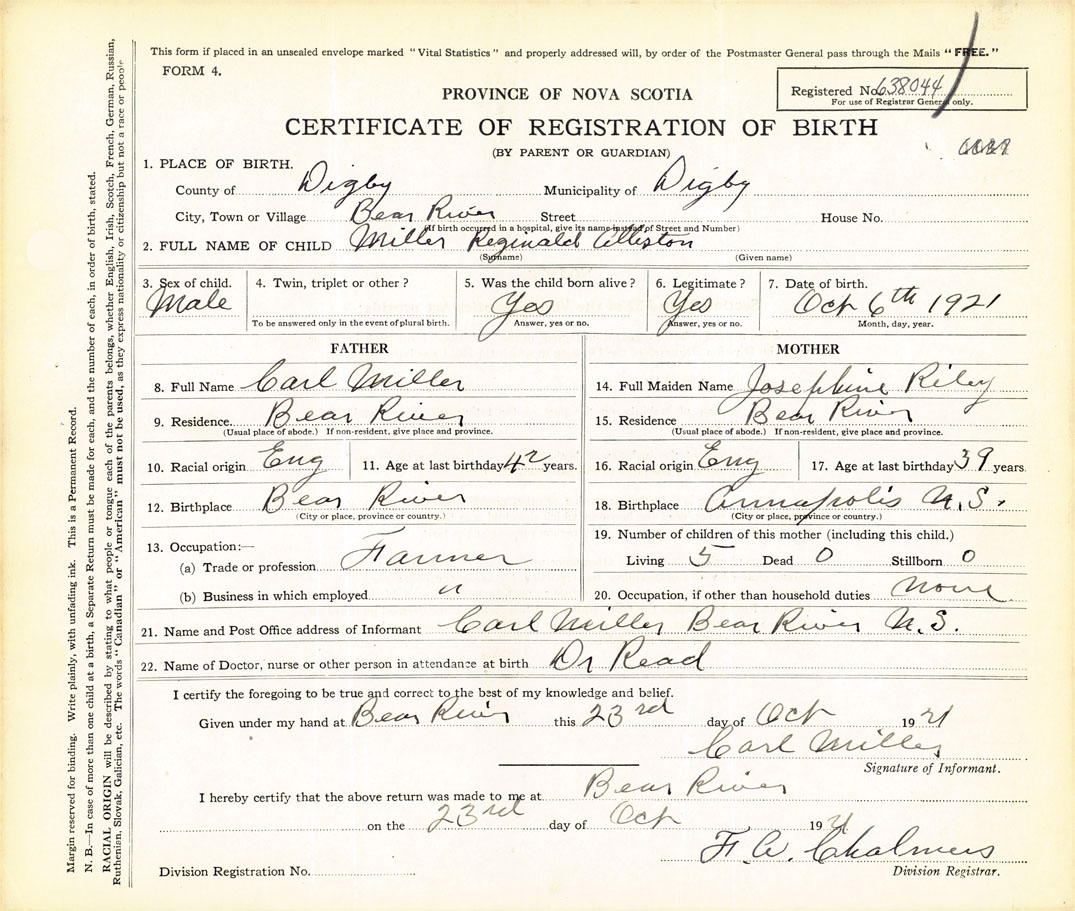 This form if placed in an unsealed envelope marked "Vital Statistics" and properly addressed will, by order of the Postmaster General pass through the Mails "FREE."
FORM 4.
Registered No. 638044
For use of Registrar General only.
PROVINCE OF NOVA SCOTIA
CERTIFICATE OF REGISTRATION OF BIRTH
(BY PARENT OR GUARDIAN)
1. PLACE OF BIRTH.
County of Digby Municipality of Digby
City, Town or Village Bear River Street House No.
(If birth occurred in a hospital, give its name instead of Street and Number)
2. FULL NAME OF CHILD Miller Reginald
(Surname) (Given name)
3. Sex of child. 4. Twin, triplet or other? 5. Was the child born alive? 6. Legitimate? 7. Date of birth.
Male Yes Yes Oct 6th 1921
To be answered only in the event of plural birth. Answer, yes or no. Answer, yes or no. Month, day, year.
FATHER
8. Full Name Carl Miller
9. Residence. Bear River
(Usual place of abode.) If non-resident, give place and province.
10. Racial origin Eng 11. Age at last birthday 42 years.
12. Birthplace Bear River
(City or place, province or country.)
13. Occupation:—
(a) Trade or profession Farmer
(b) Business in which employed "
MOTHER
14. Full Maiden Name Josephine Riley
15. Residence Bear River
(Usual place of abode.) If non-resident, give place and province.
16. Racial origin Eng 17. Age at last birthday 39 years.
18. Birthplace Annapolis N.S.
(City or place, province or country.)
19. Number of children of this mother (including this child.)
Living 5 Dead 0 Stillborn 0
20. Occupation, if other than household duties none
21. Name and Post Office address of Informant Carl Miller Bear River N.S.
22. Name of Doctor, nurse or other person in attendance at birth Dr Read
I certify the foregoing to be true and correct to the best of my knowledge and belief.
Given under my hand at Bear River this 23rd day of Oct 1921
Carl Miller
Signature of Informant.
I hereby certify that the above return was made to me at Bear River
on the 23rd day of Oct 1921
F. A. Chalmers
Division Registration No. Division Registrar.
Margin reserved for binding. Write plainly, with unfading ink. This is a Permanent Record.
N. B.—In case of more than one child at a birth, a Separate Return must be made for each, and the number of each, in order of birth, stated.
RACIAL ORIGIN will be described by stating to what people or tongue each of the parents belongs, whether English, Irish, Scotch, French, German, Russian,
Ruthenian, Slovak, Galician, etc. The words "Canadian" or "American" must not be used, as they express nationality or citizenship but not a race or people